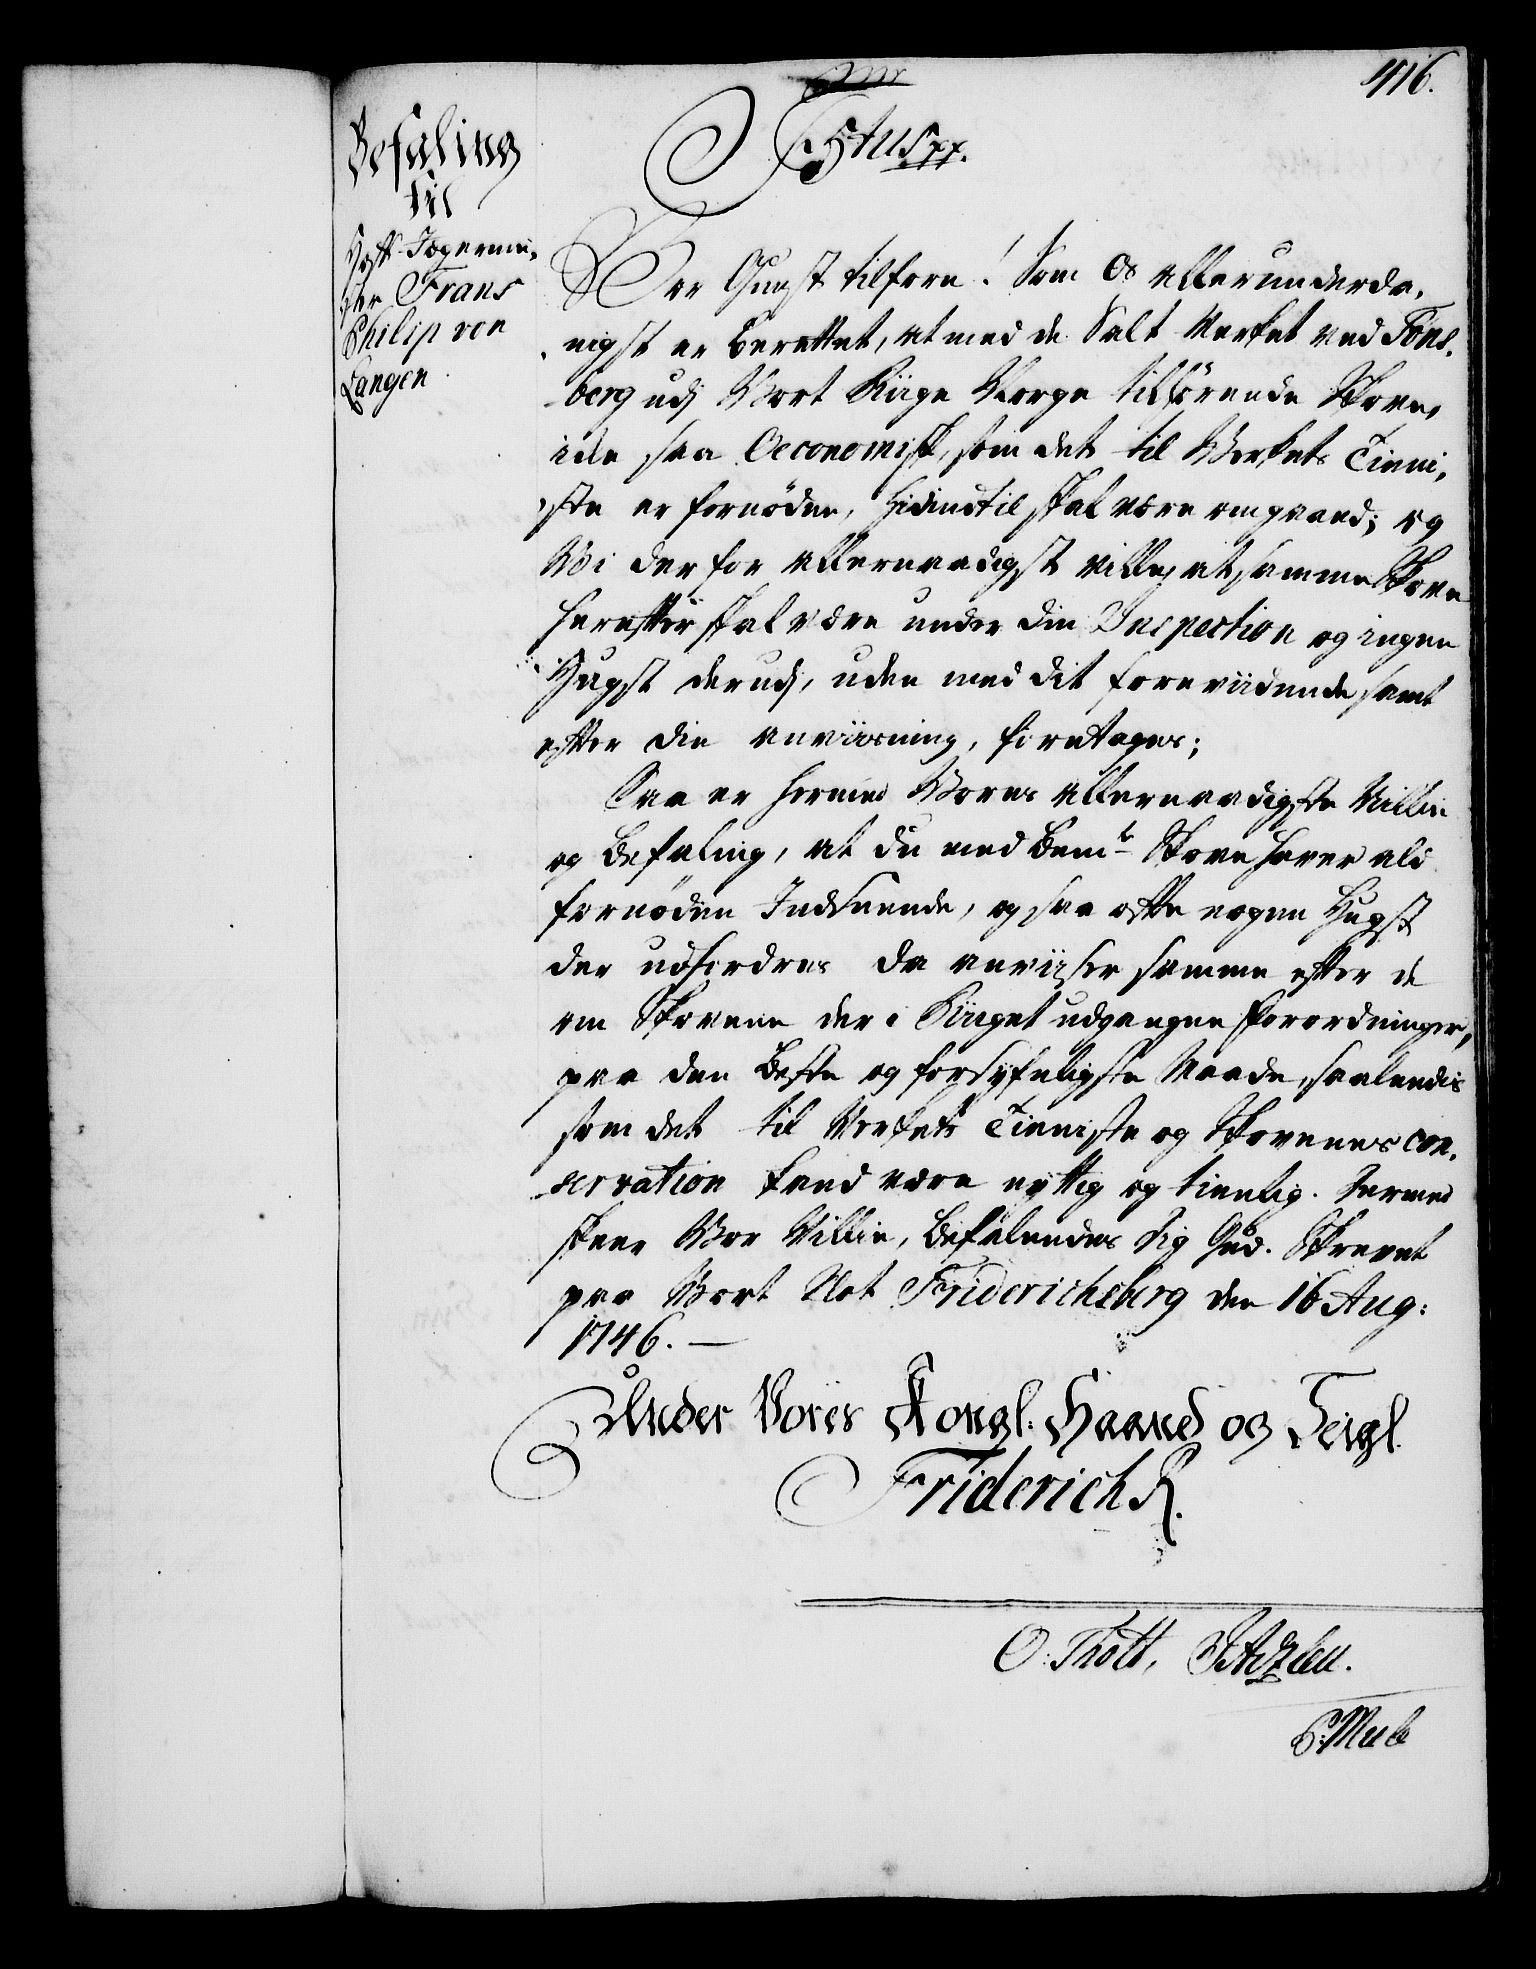 416.
Befaling
til
Hoff-Jægermei-
ster Frans
Philip von
Langen.
F5tus pp.
Vor Gunst tilforn! Som Os allerunderda-
nigst er berettet, at med de Salt Verket ved Töns-
berg udj Vort Riige Norge tilhörende Skove,
icke saa Oeconomisk, som det til Verkets Tieni-
ste er fornöden, hidindtil skal være omgaaed; og
Vi derfor allernaadigst ville, at samme Skove
herefter skal være under din Inspection og ingen
Hugst derudj, uden med dit foreviidende samt
efter din anviisning, foretages;
Saa er hermed Vores allernaadigste Villie
og Befaling, at du med bemte Skove haver ald
fornöden Indseende, og saa ofte nogen Hugst
der udfordres da anviiser samme efter de
om Skovene der i Riiget udgangne Forordninger,
paa den beste og forsynligste Maade, saaledis
som det til Verkets Tieniste og Skovenes con-
servation kand være nyttig og tienlig. Dermed
skeer Vor Villie, Befalendes dig Gud. Skrevet
paa Vort Slot Friderichsberg den 16 Aug:
1746. —
Under Vores Kongl: Haand og Seigl.
Friderich R.
O: Thott,
P: Mule